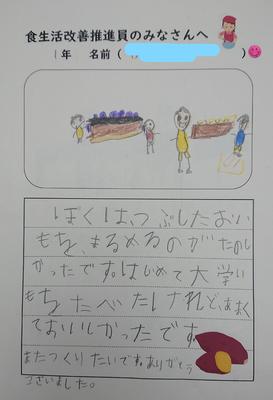 食生活改善推進員のみなさんへ
1年 名前( )
ぼくは、つぶしたおい
もを、まるめるのがたのし
かったです。はじめて大学い
もをたべたけれど、あまく
ておいしかったです。
またつくりたいです。ありがとう
ございました。